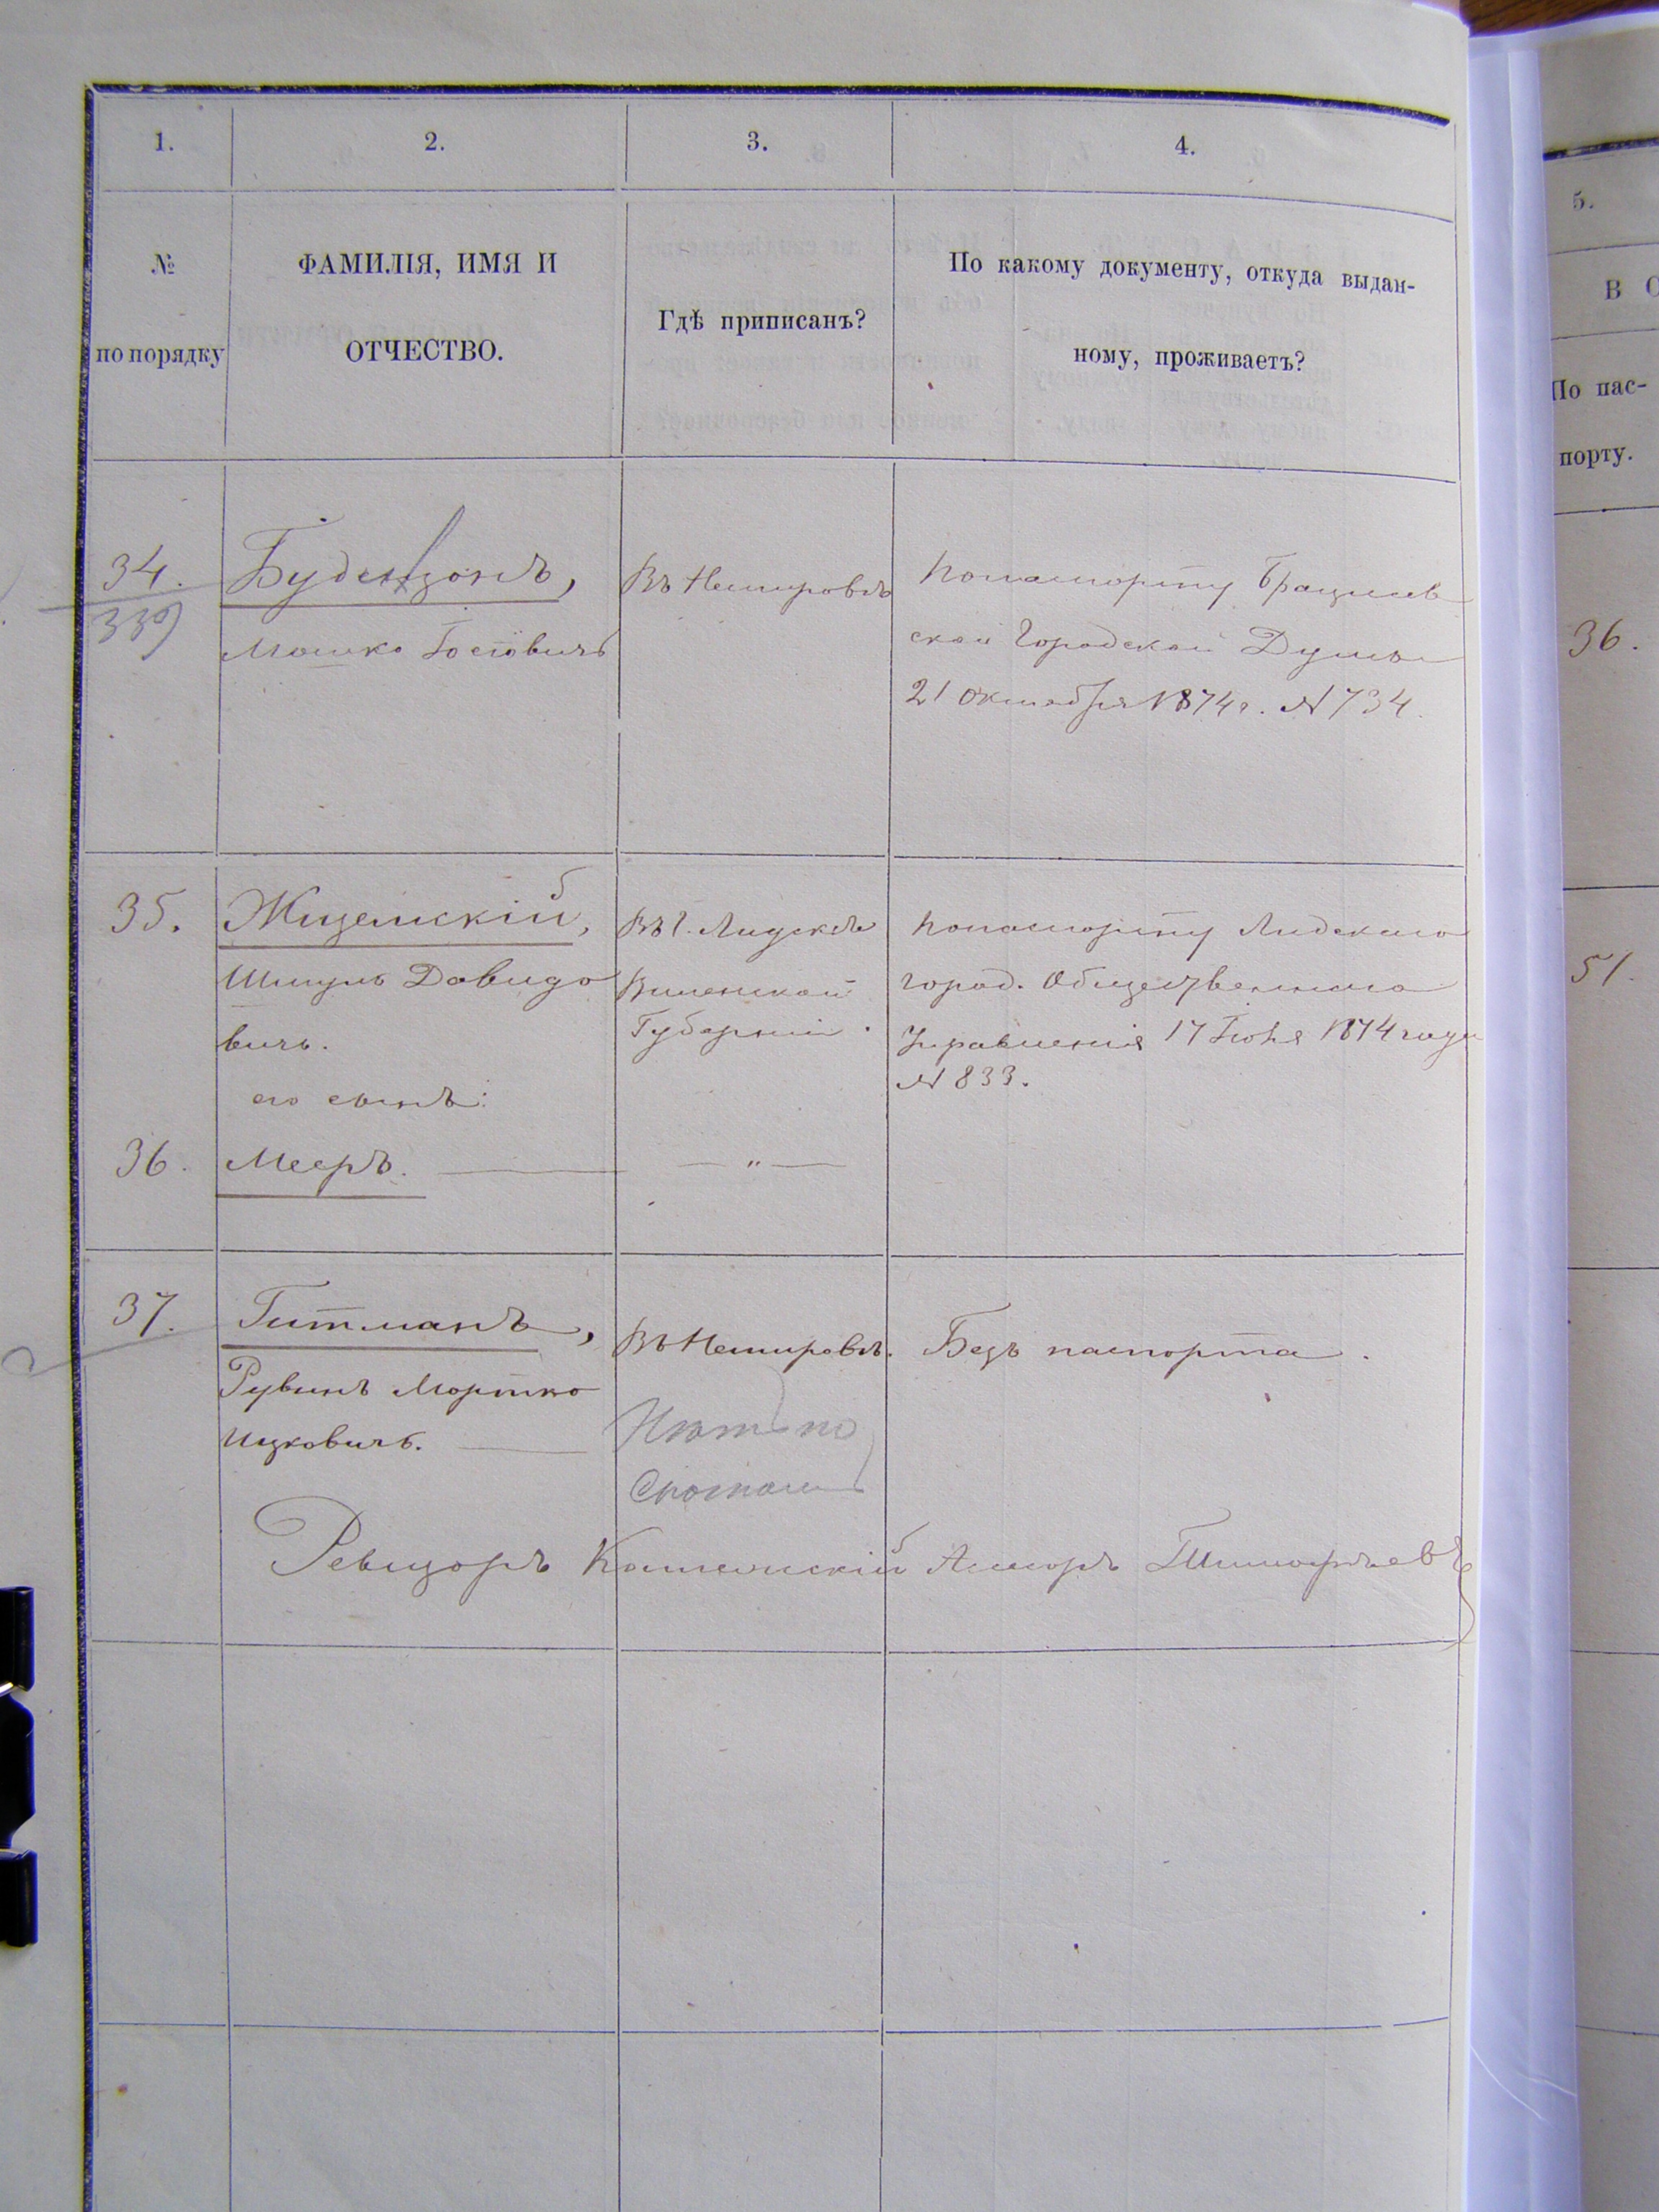 1.
2.
3.
4.
№
по порядку
ФАМИЛІЯ, ИМЯ И
ОТЧЕСТВО.
Гдѣ приписанъ?
По какому документу, откуда выдан-
ному, проживаетъ?
5.
В С
По пас-
порту.
34.
339
Мошко Іосіовичъ
Въ Немировѣ
По паспорту Брацлав
ской Городской Думы
21 Октября 1874 г. № 734.
36.
35.
Жиземскій,
Шмуль Давидо
вичъ.
его сынъ:
Въ г. Лидскѣ
Виленской
Губерніи.
По паспорту Лидскаго
город. Общественнаго
Управленія 17 Іюня 1874 года
№ 833.
51.
36.
Мееръ.
— „ —
37.
Гитманъ,
Рувинъ Мортко
Ицковичъ.
Въ Немировѣ.
Безъ паспорта.
Нѣтъ по
Ревизоръ Коллежскій Ассесоръ Тимофѣевъ